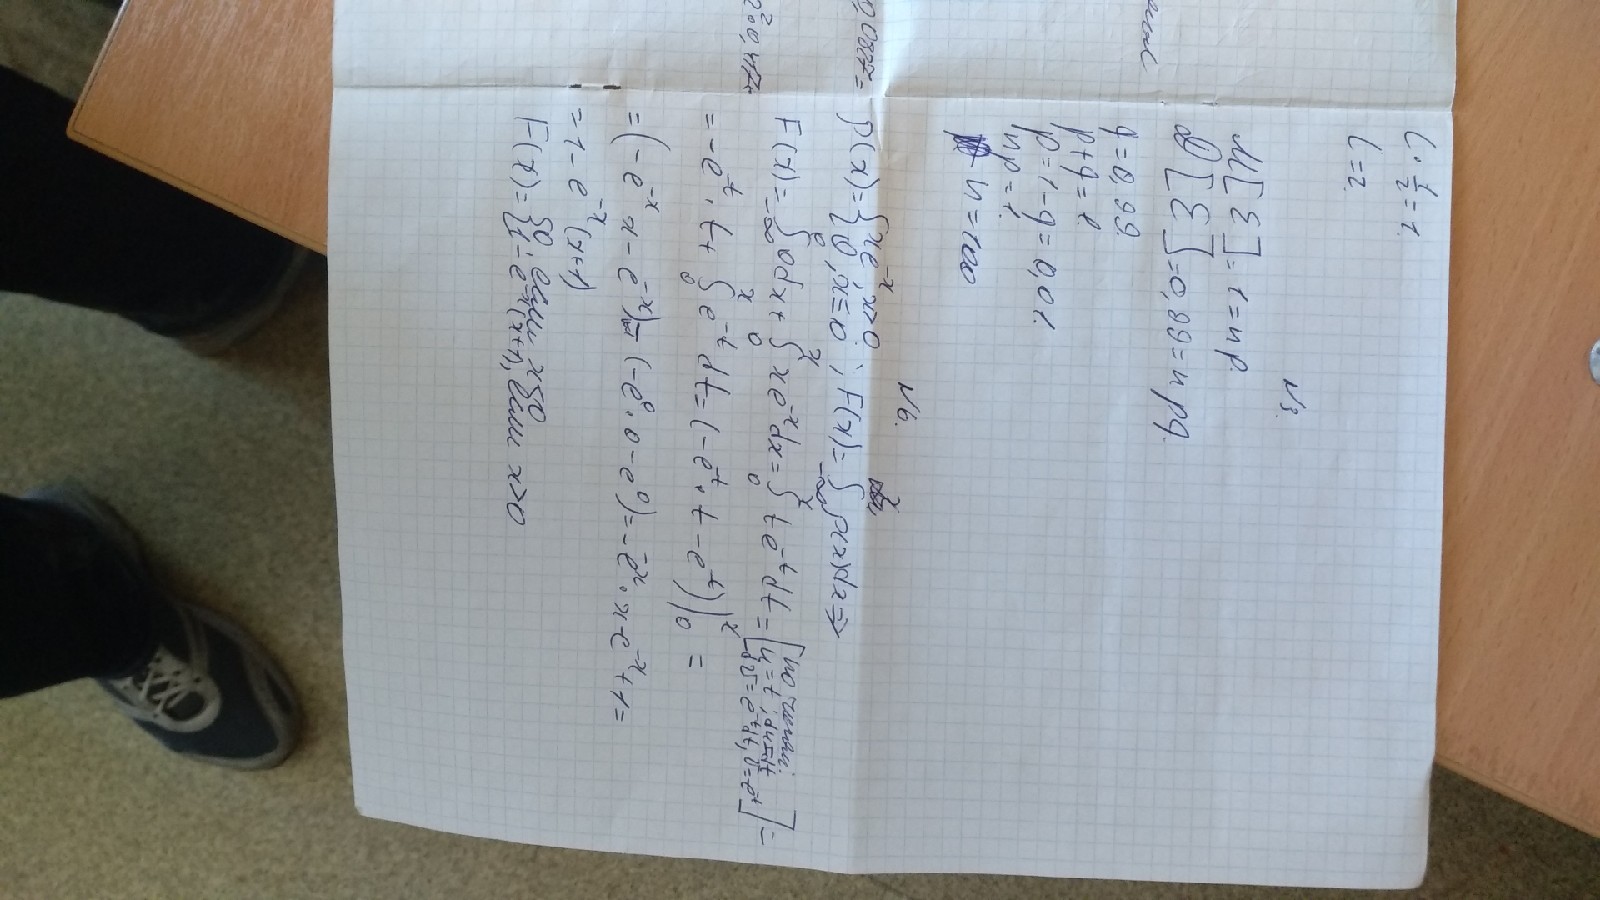 C · 1/2 = 1.
C = 2.
N3.
M[ξ] = 1 = np.
D[ξ] = 0,99 = npq.
q = 0,99.
p + q = 1.
p = 1 - q = 0,01.
np = 1.
n = 100
N6.
0,0827 =
p(x) = { xe^{-x}, x>0 ; 0, x≤0 ; F(x) = ∫_{-∞}^{x} p(x)dx ⇒
F(x) = ∫_{-∞}^{0} 0dx + ∫_{0}^{x} xe^{-x}dx = ∫_{0}^{x} te^{-t}dt = [по частям: u=t, du=dt dv=e^{-t}dt, v=-e^{-t}] =
= -e^{-t} · t + ∫_{0}^{x} e^{-t} dt = (-e^{-t} · t - e^{-t})|_{0}^{x} =
= (-e^{-x} x - e^{-x}) - (-e^{0} · 0 - e^{0}) = -e^{-x} · x - e^{-x} + 1 =
= 1 - e^{-x}(x+1)
F(x) = { 0, если x≤0 ; 1 - e^{-x}(x+1), если x>0